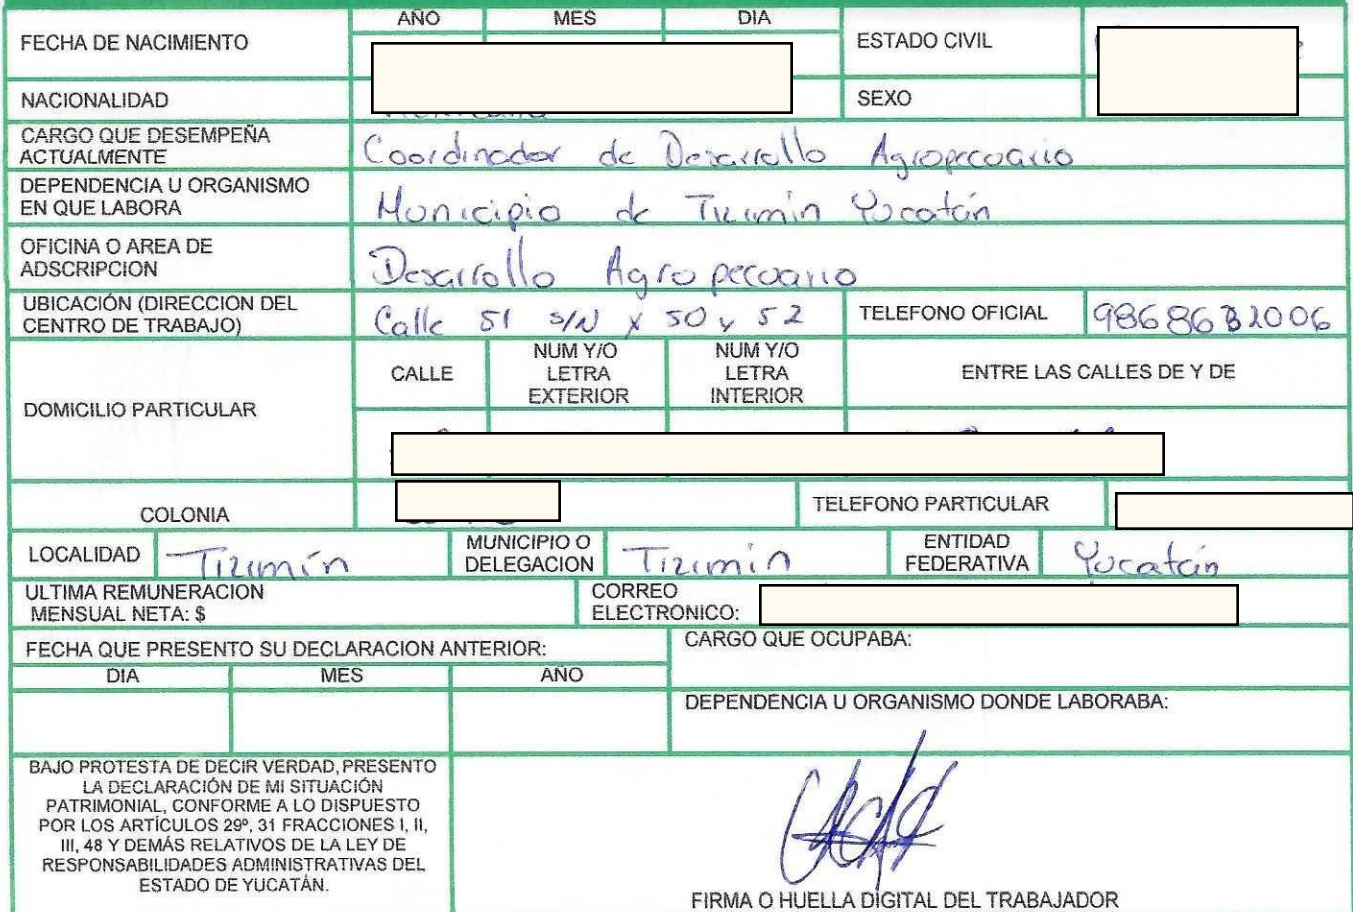 AÑO MES DIA
FECHA DE NACIMIENTO ESTADO CIVIL
NACIONALIDAD SEXO
CARGO QUE DESEMPEÑA
ACTUALMENTE
Coordinador de Desarrollo Agropecuario
DEPENDENCIA U ORGANISMO
EN QUE LABORA
Municipio de Tizimín Yucatán
OFICINA O AREA DE
ADSCRIPCION
Desarrollo Agropecuario
UBICACIÓN (DIRECCION DEL
CENTRO DE TRABAJO)
Calle 51 S/N x 50 y 52
TELEFONO OFICIAL
DOMICILIO PARTICULAR
CALLE
NUM Y/O
LETRA
EXTERIOR
NUM Y/O
LETRA
INTERIOR
ENTRE LAS CALLES DE Y DE
COLONIA
TELEFONO PARTICULAR
LOCALIDAD Tizimín
MUNICIPIO O
DELEGACION
Tizimin
ENTIDAD
FEDERATIVA
Yucatán
ULTIMA REMUNERACION
MENSUAL NETA: $
CORREO
ELECTRONICO:
FECHA QUE PRESENTO SU DECLARACION ANTERIOR:
DIA MES AÑO
CARGO QUE OCUPABA:
DEPENDENCIA U ORGANISMO DONDE LABORABA:
BAJO PROTESTA DE DECIR VERDAD, PRESENTO
LA DECLARACIÓN DE MI SITUACIÓN
PATRIMONIAL, CONFORME A LO DISPUESTO
POR LOS ARTÍCULOS 29º, 31 FRACCIONES I, II,
III, 48 Y DEMÁS RELATIVOS DE LA LEY DE
RESPONSABILIDADES ADMINISTRATIVAS DEL
ESTADO DE YUCATÁN.
FIRMA O HUELLA DIGITAL DEL TRABAJADOR